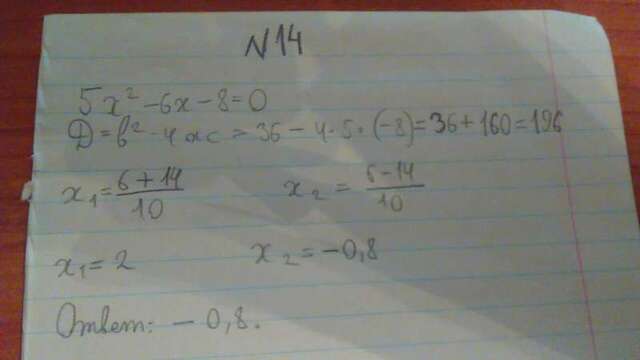 N14
5x² - 6x - 8 = 0
D = b² - 4ac = 36 - 4·5·(-8) = 36 + 160 = 196
x₁ = (6 + 14)/10 x₂ = (6 - 14)/10
x₁ = 2 x₂ = -0,8
Ответ: -0,8.